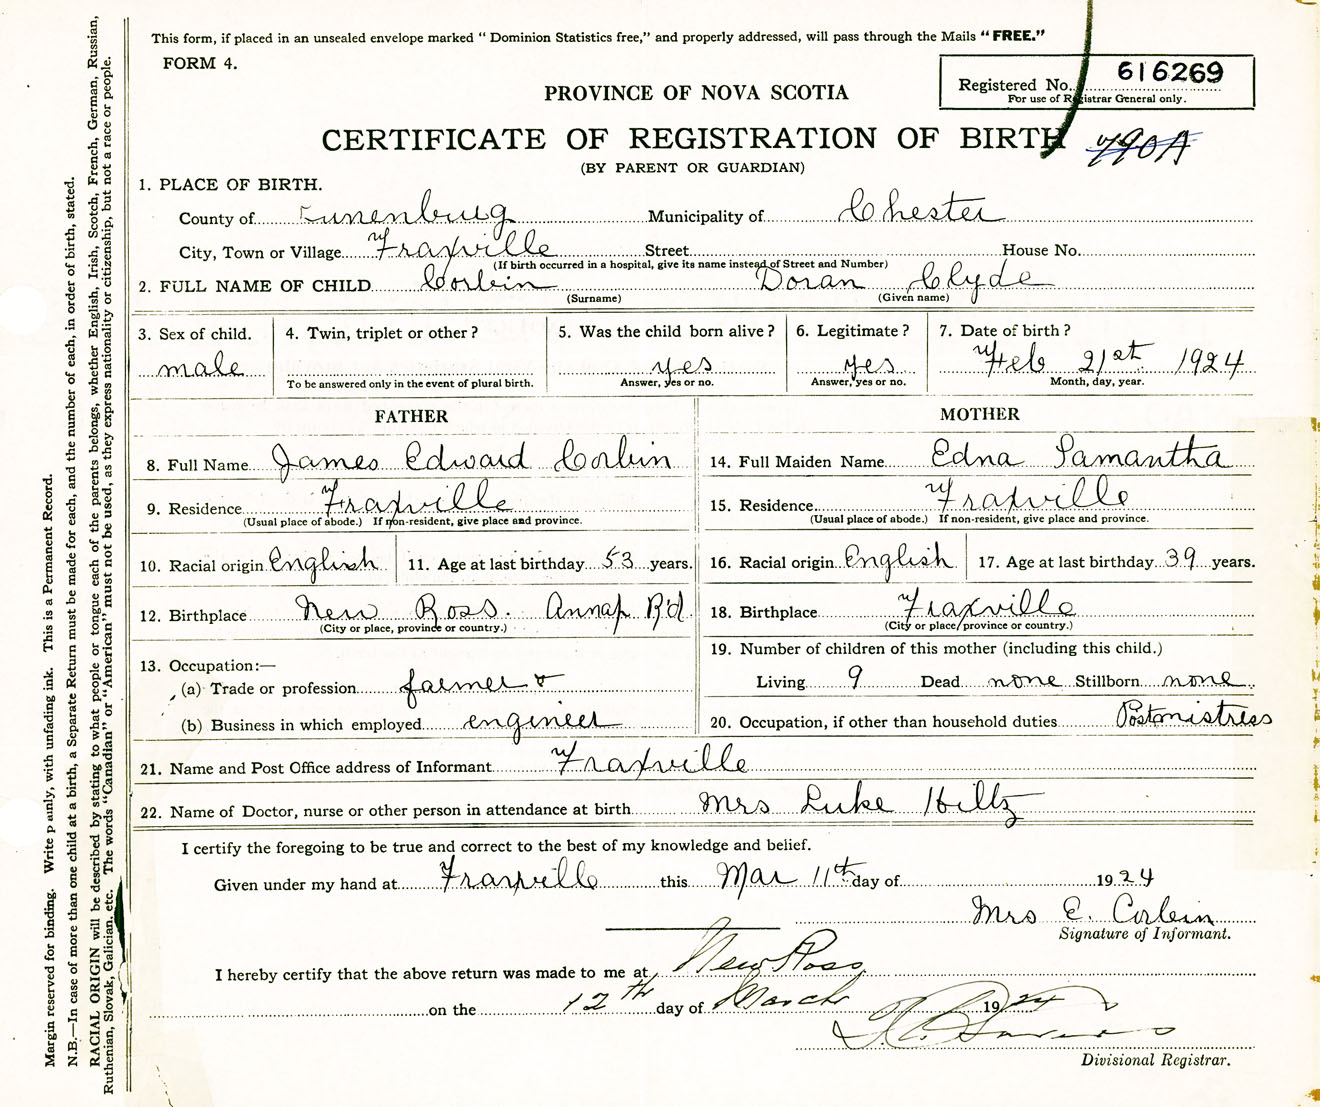 This form, if placed in an unsealed envelope marked "Dominion Statistics free," and properly addressed, will pass through the Mails "FREE."
FORM 4.
Registered No. 616269
For use of Registrar General only.
PROVINCE OF NOVA SCOTIA
CERTIFICATE OF REGISTRATION OF BIRTH 790A
(BY PARENT OR GUARDIAN)
1. PLACE OF BIRTH.
County of Lunenburg Municipality of Chester
City, Town or Village Fraxville Street House No.
(If birth occurred in a hospital, give its name instead of Street and Number)
2. FULL NAME OF CHILD Corbin Doran Clyde
(Surname) (Given name)
3. Sex of child. 4. Twin, triplet or other? 5. Was the child born alive? 6. Legitimate? 7. Date of birth?
male yes yes Feb 21st 1924
To be answered only in the event of plural birth. Answer, yes or no. Answer, yes or no. Month, day, year.
FATHER MOTHER
8. Full Name James Edward Corbin 14. Full Maiden Name Edna Samantha
9. Residence Fraxville 15. Residence Fraxville
(Usual place of abode.) If non-resident, give place and province. (Usual place of abode.) If non-resident, give place and province.
10. Racial origin English 11. Age at last birthday 53 years. 16. Racial origin English 17. Age at last birthday 39 years.
12. Birthplace New Ross. Annap R'd 18. Birthplace Fraxville
(City or place, province or country.) (City or place, province or country.)
13. Occupation:— 19. Number of children of this mother (including this child.)
(a) Trade or profession farmer & Living 9 Dead none Stillborn none
(b) Business in which employed engineer 20. Occupation, if other than household duties Postmistress
21. Name and Post Office address of Informant Fraxville
22. Name of Doctor, nurse or other person in attendance at birth Mrs Luke Hiltz
I certify the foregoing to be true and correct to the best of my knowledge and belief.
Given under my hand at Fraxville this Mar 11th day of 1924
Mrs E. Corbin
Signature of Informant.
I hereby certify that the above return was made to me at New Ross
on the 12th day of March 1924
Divisional Registrar.
Margin reserved for binding. Write p anly, with unfading ink. This is a Permanent Record.
N.B.—In case of more than one child at a birth, a Separate Return must be made for each, and the number of each, in order of birth, stated.
RACIAL ORIGIN will be described by stating to what people or tongue each of the parents belongs, whether English, Irish, Scotch, French, German, Russian,
Ruthenian, Slovak, Galician, etc. The words "Canadian" or "American" must not be used, as they express nationality or citizenship, but not a race or people.